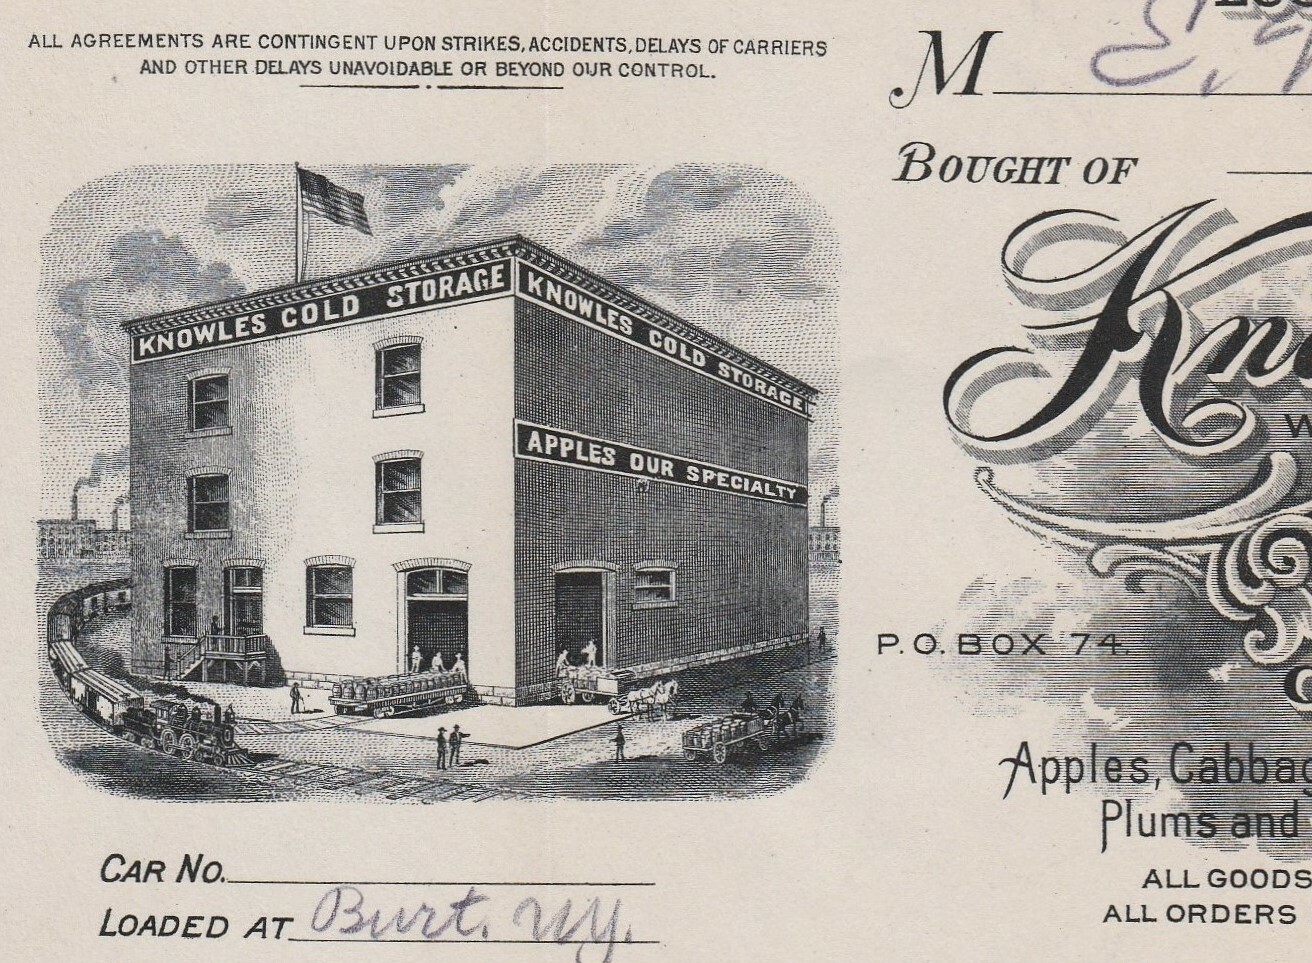 ALL AGREEMENTS ARE CONTINGENT UPON STRIKES, ACCIDENTS, DELAYS OF CARRIERS
AND OTHER DELAYS UNAVOIDABLE OR BEYOND OUR CONTROL.
M
E.
BOUGHT OF
KNOWLES COLD STORAGE
KNOWLES COLD STORAGE
APPLES OUR SPECIALTY
Kno
W
P.O. BOX 74
Apples, Cabbag
Plums and
ALL GOODS
ALL ORDERS
CAR NO.
LOADED AT Burt. NY.